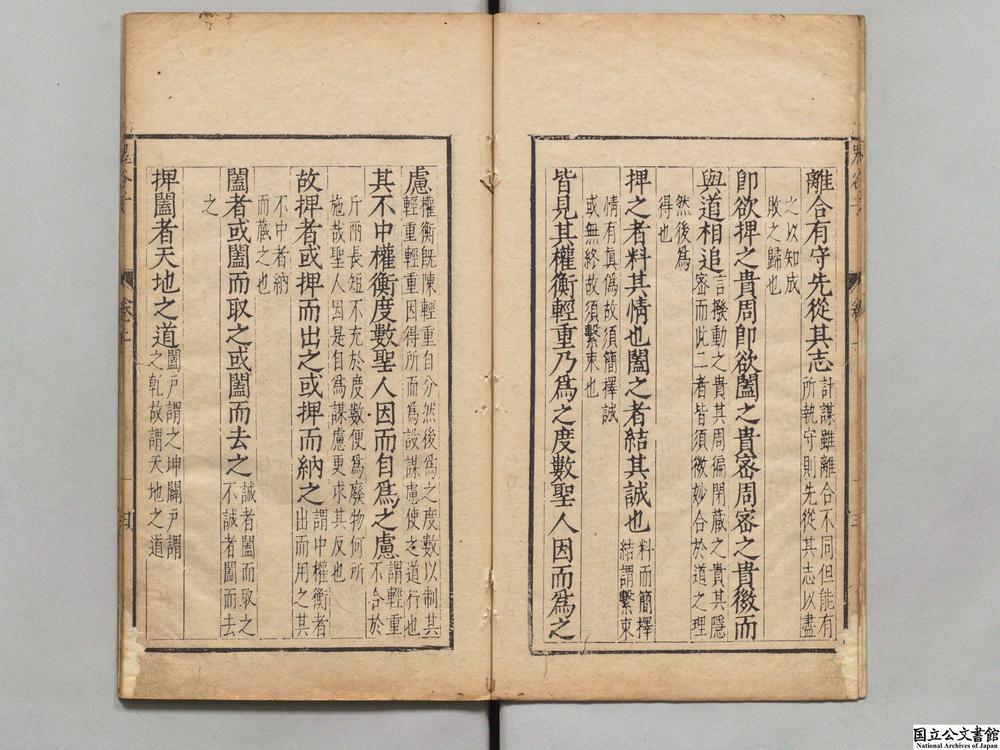 離合有守先從其志計謀雖離合不同但能有
所執守則先從其志以盡
之以知成
敗之歸也
即欲捭之貴周即欲闔之貴密周密之貴微而
與道相追言撥動之貴其周徧閉藏之貴其隱
密而此二者皆須微妙合於道之理
然後爲
得也
捭之者料其情也闔之者結其誠也料而簡擇
結謂繫束
情有真僞故須簡擇誠
或無終故須繫束也
皆見其權衡輕重乃爲之度數聖人因而爲之
慮權衡既陳輕重自分然後爲之度數以制其
輕重輕重因得所而爲設謀慮使之道行也
其不中權衡度數聖人因而自爲之慮謂輕重
不合於
斤兩長短不充於度數便爲廢物何所
施哉聖人因是自爲謀慮更求其反也
故捭者或捭而出之或捭而納之謂中權衡者
出而用之其
不中者納
而藏之也
闔者或闔而取之或闔而去之誠者闔而取之
不誠者闔而去
之
捭闔者天地之道闔戶謂之坤闢戶謂
之乾故謂天地之道
四
国立公文書館
National Archives of Japan